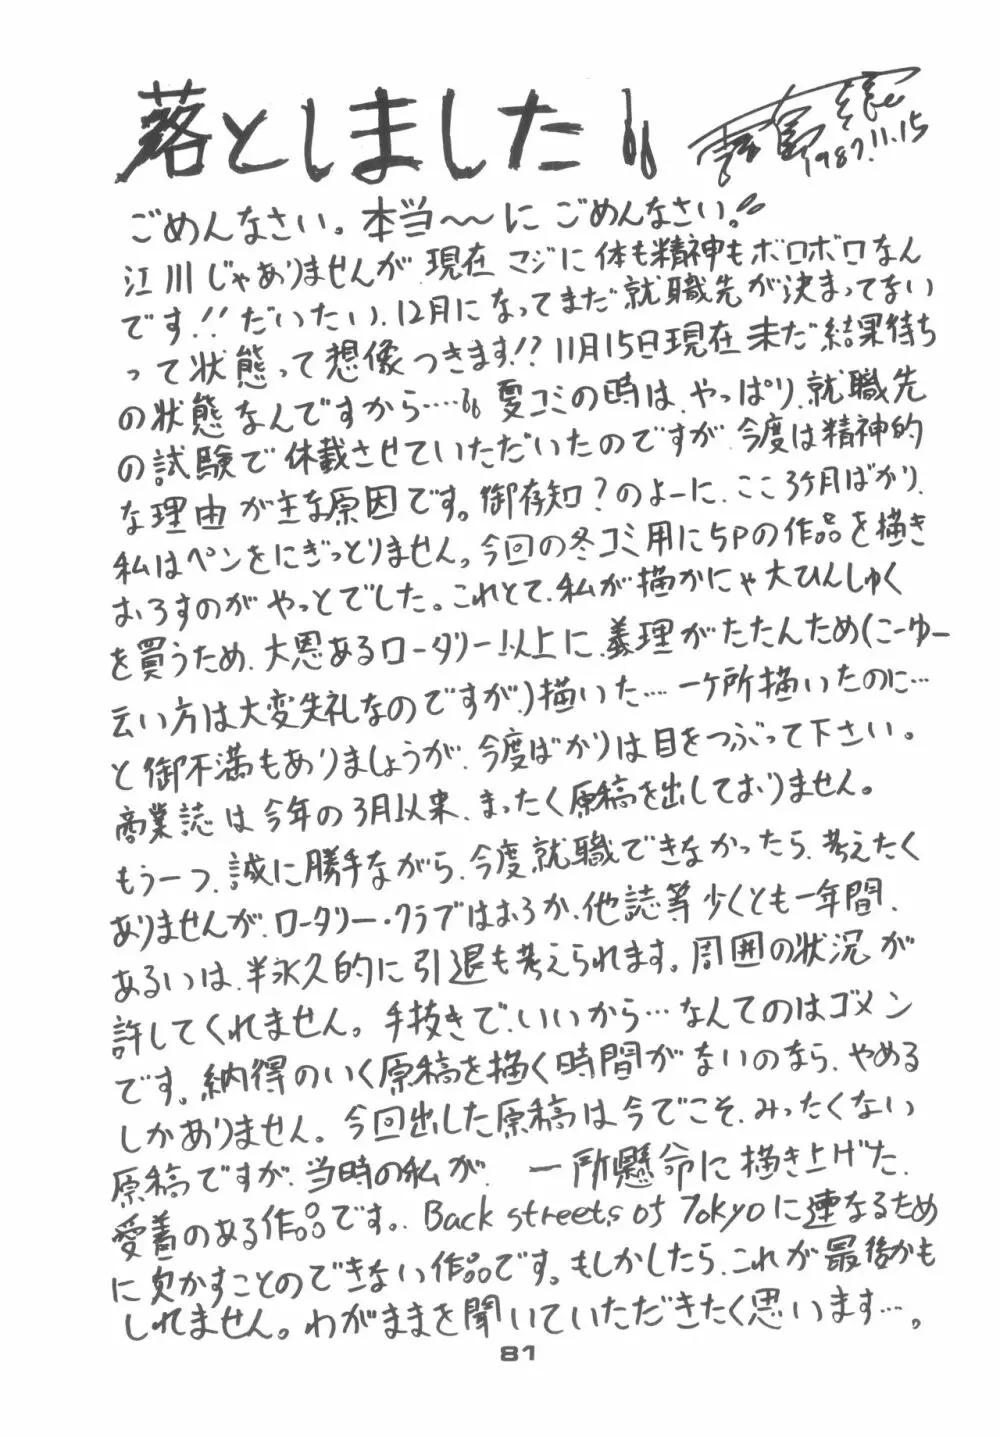 落としました
1987.11.15
ごめんなさい。本当〜〜に ごめんなさい。
江川じゃありませんが 現在 マジに 体も精神もボロボロなん
です!!だいたい、12月になってまだ就職先が決まってない
って状態って想像つきます!?11月15日現在未だ結果待ち
の状態なんですから…… 夏コミの時は、やっぱり、就職先
の試験で休載させていただいたのですが、今度は精神的
な理由が主な原因です。御存知?のよーに、ここ3ヶ月ばかり、
私はペンをにぎっとりません。今回の冬コミ用に5Pの作品を描き
おろすのがやっとでした。これとて、私が描かにゃ大ひんしゅく
を買うため、大恩あるロータリー以上に、義理がたたんため(こーゆー
云い方は大変失礼なのですが、)描いた……一ケ所描いたのに…
と御不満もありましょうが、今度ばかりは目をつぶって下さい。
商業誌は今年の3月以来、まったく原稿を出しておりません。
もう一つ、誠に勝手ながら、今度就職できなかったら、考えたく
ありませんが、ロータリー・クラブはおろか、他誌等少くとも一年間、
あるいは、半永久的に引退も考えられます。周囲の状況が
許してくれません。手抜きで、いいから…なんてのはゴメン
です。納得のいく原稿を描く時間がないのなら、やめる
しかありません。今回出した原稿は今でこそ、みったくない
原稿ですが、当時の私が、一所懸命に描き上げた、
愛着のある作品です。Back streets of Tokyoに連なるため
に欠かすことのできない作品です。もしかしたら、これが最後かも
しれません。わがままを聞いていただきたく思います…。
81